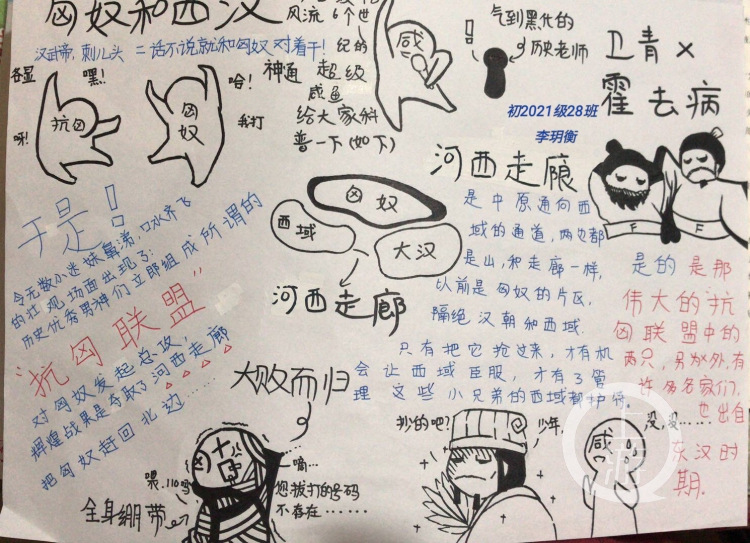 匈奴和西汉
汉武帝,刺儿头 二话不说就和匈奴对着干!
各显
嘿!
呀!
抗匈
匈奴
哈!
我打
神通
风流 6个世
纪的
超级
咸鱼
给大家科
普一下(如下)
感
!
气到黑化的
历史老师
卫青×
霍去病
初2021级28班
李玥衡
于是!
令无数小迷妹鼻涕口水齐飞
的壮观场面出现了:
历史优秀男神们立即组成所谓的
"抗匈联盟"
对匈奴发起总攻,
辉煌战果是夺取了河西走廊
把匈奴赶回北边……
匈奴
西域
大汉
河西走廊
河西走廊
是中原通向西
域的通道,两边都
是山,和走廊一样,
以前是匈奴的片区,
隔绝汉朝和西域.
只有把它抢过来,才有机
会让西域臣服,才有了管
理这些小兄弟的西域都护府.
F
F
是的是那
伟大的抗
匈联盟中的
两只,另外,有
许多名家们,
也出自
东汉时
期.
大败而归
匈
喂,110吗
全身绷带
一嘀……
您拨打的号码
不存在……
抄的吧?
少年,
没,没……
感